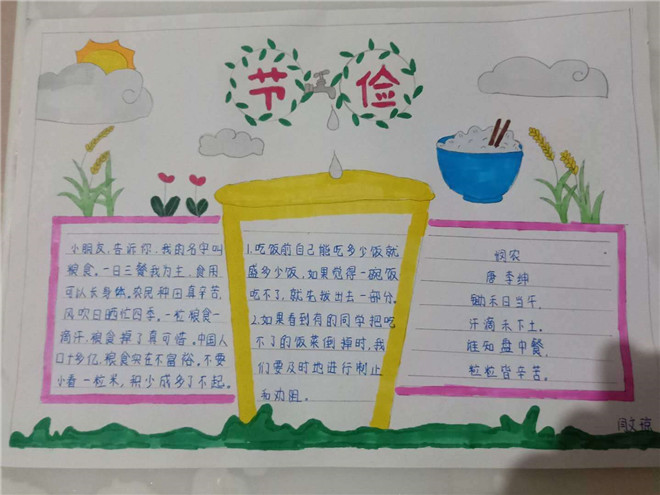 节俭
小朋友,告诉你,我的名字叫
粮食。一日三餐我为主,食用
可以长身体。农民种田真辛苦,
风吹日晒忙四季。一粒粮食一
滴汗,粮食掉了真可惜。中国人
口十多亿,粮食实在不富裕。不要
小看一粒米,积少成多了不起。
1.吃饭前自己能吃多少饭就
盛多少饭,如果觉得一碗饭
吃不了,就先拨出去一部分。
2.如果看到有的同学把吃
不了的饭菜倒掉时,我
们要及时地进行制止
和劝阻。
悯农
唐 李绅
锄禾日当午,
汗滴禾下土。
谁知盘中餐,
粒粒皆辛苦。
闫文